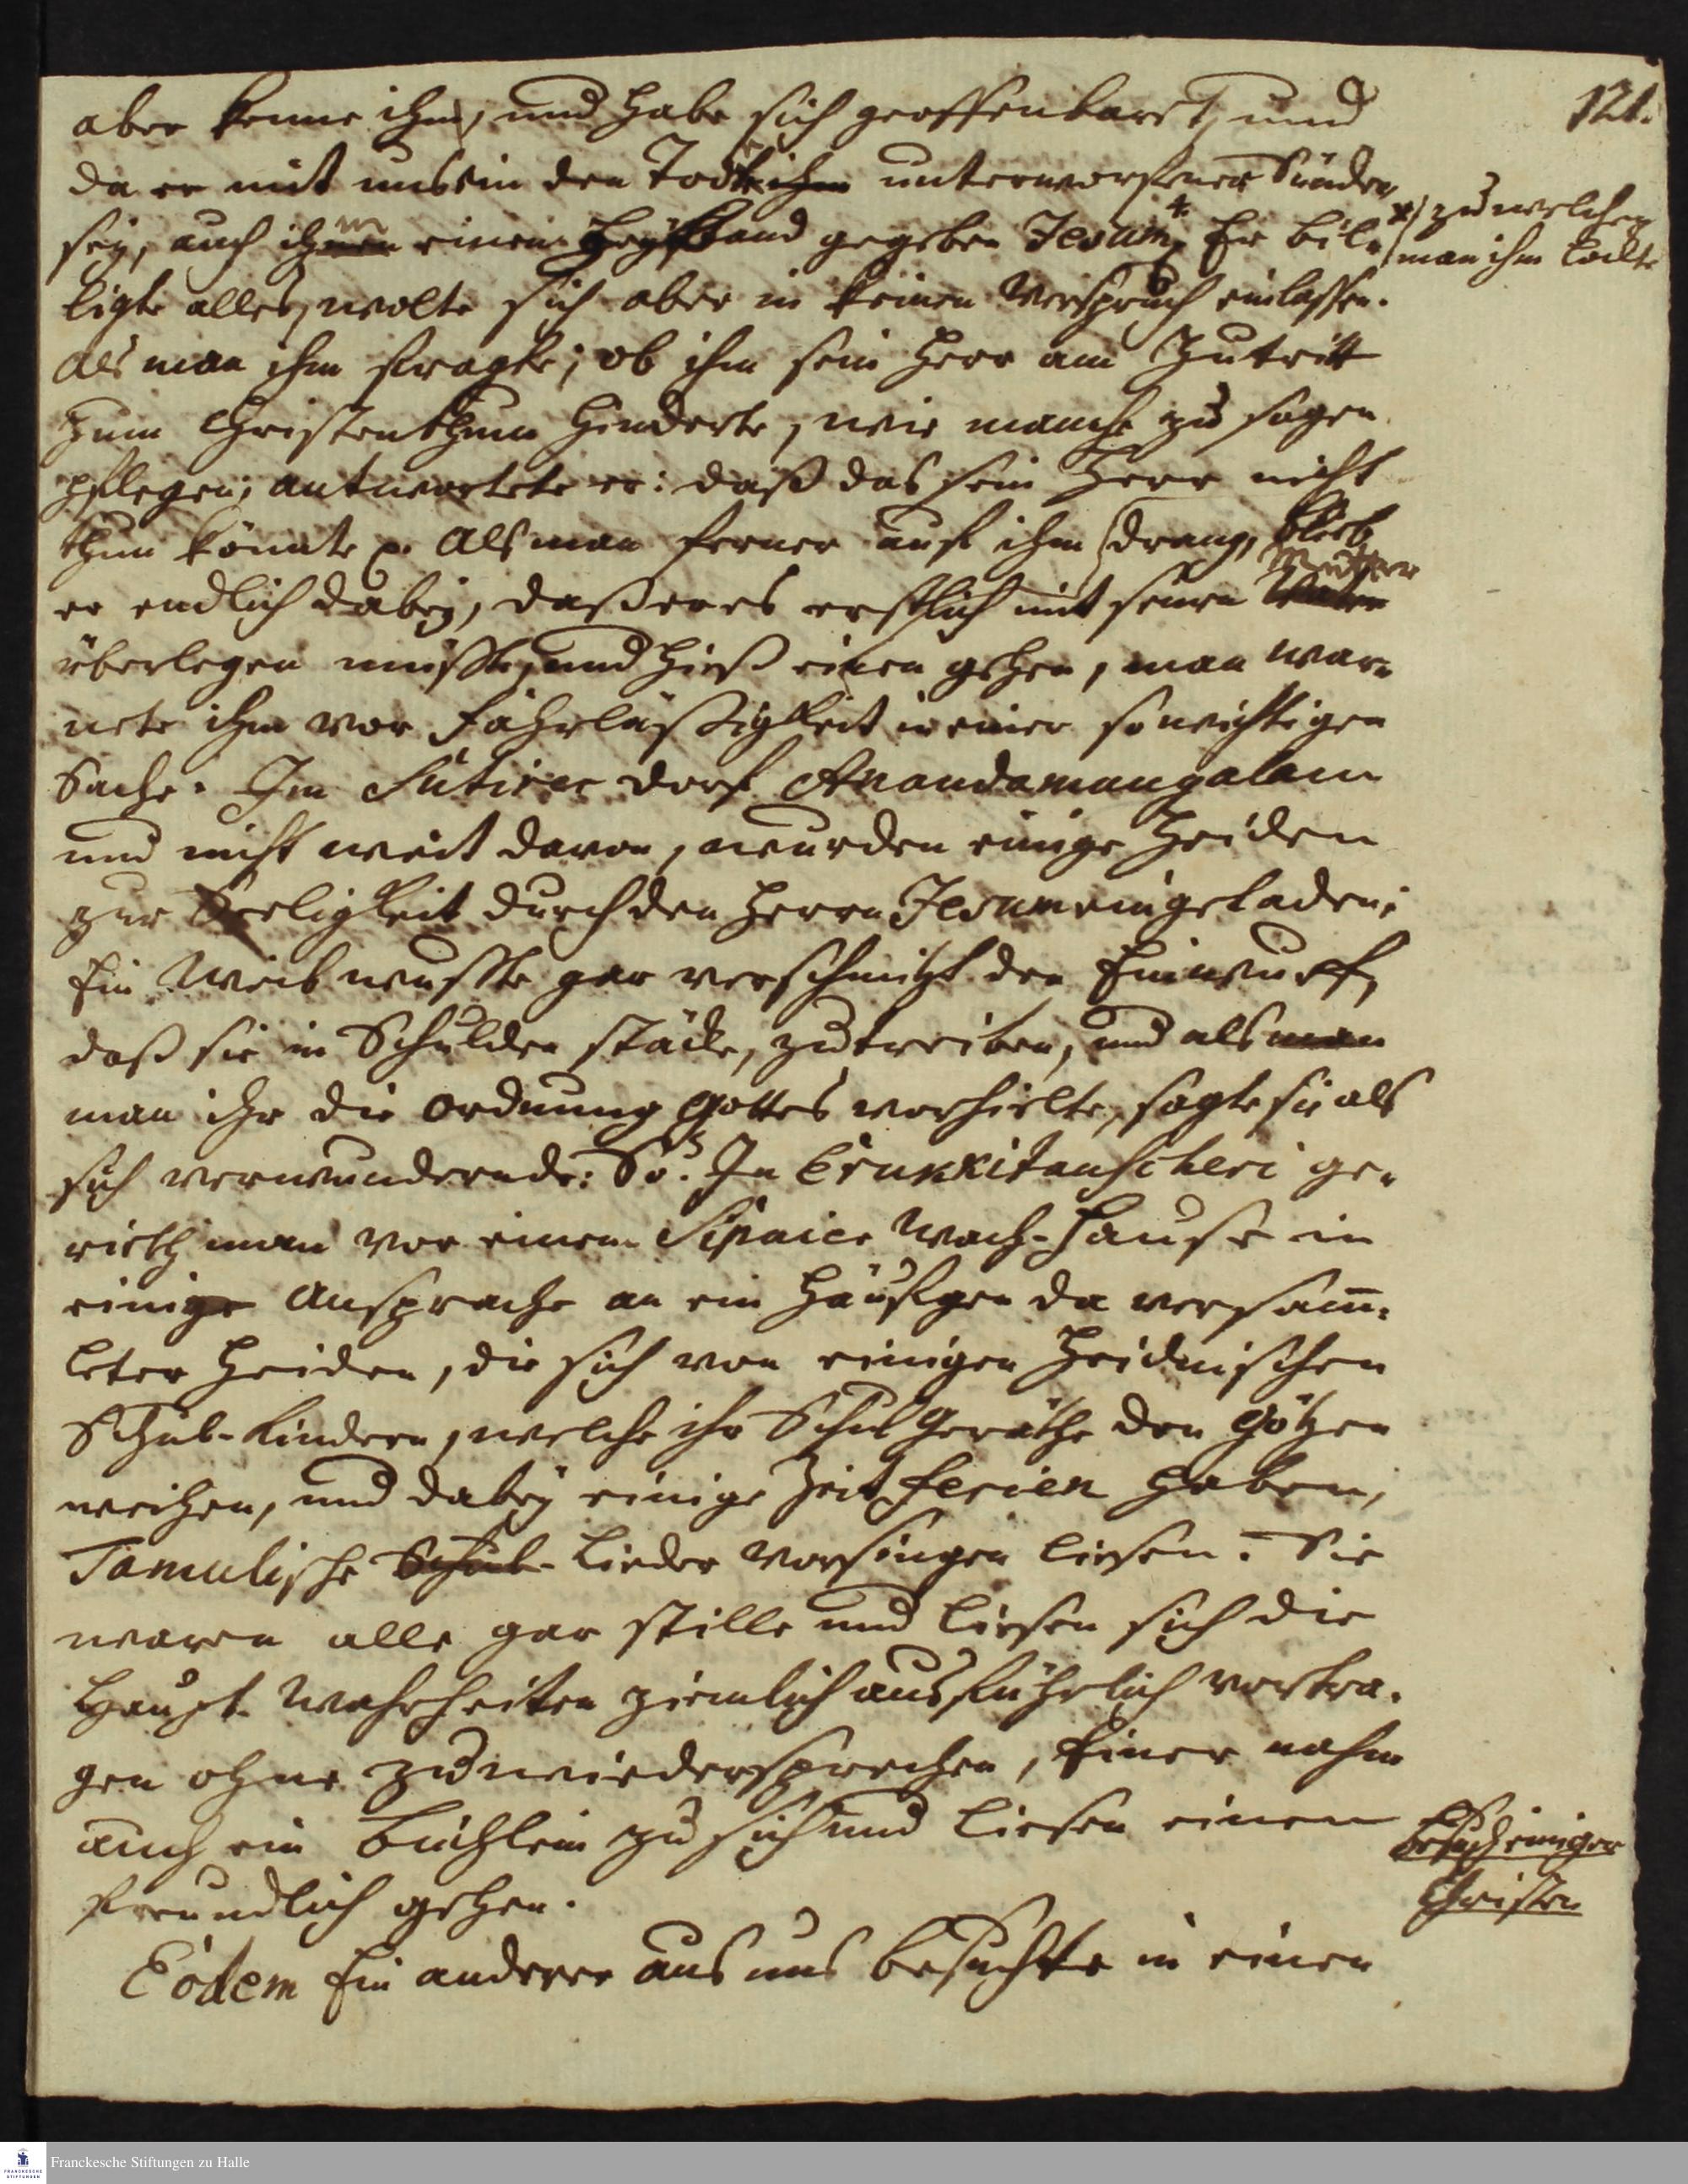 121.
aber kenne ihm, und habe sich geoffenbaret, und
da er mit uns ein dem Tode unterworfener Sünder
sey, auch ihm einen Heyland gegeben Jesum, Er bil-
*) zu welchen
man ihm lockte
ligte alles, wolte sich aber in keinen Verspruch einlassen.
Als man ihm fragte; ob ihm sein Herr am Zutritt
zum Christenthum hinderte, wie manche zu sagen
pflegen; antwortete er: daß das sein Herr nicht
thun könnte p. Als man ferner auf ihm drang, blieb
er endlich dabey, daß er es erstlich mit seiner Mutter
überlegen müsste, und hieß einen gehen, man war-
nete ihm vor Fahrläßigkeit in einer so wichtigen
Sache. Im Sutirer dorf Anandamangalam
und nicht weit davon, wurden einige Heiden
zur Seeligkeit durch den Herrn Jesum eingeladen;
Ein Weib wusste gar verschmitzt den Einwurf,
daß sie in Schulden stäcke, zu treiben, und als man
man ihr die Ordnung Gottes vorhielte, sagte sie als
sich verwundernde: So. In Erukkitanscheri ge-
rieth man vor einem Sipaier Wach-Hause in
einige Ansprache an ein Häufgen da versam̅-
leter Heiden, die sich von einigen Heidnischen
Schul-Kindern, welche ihr Schul Geräthe den Götzen
weihen, und dabey einige Zeit ferien haben,
Tamulische Schul-Lieder vorsingen liesen. Sie
waren alle gar stille und liesen sich die
Haupt-Wahrheiten ziemlich ausführlich vortra-
gen ohne zu wiedersprechen, Einer nahm
auch ein Büchlein zu sich und liesen einen
freundlich gehen.
Besuch einiger
Christen
Eodem Ein anderer aus uns besuchte in einen
Franckesche Stiftungen zu Halle